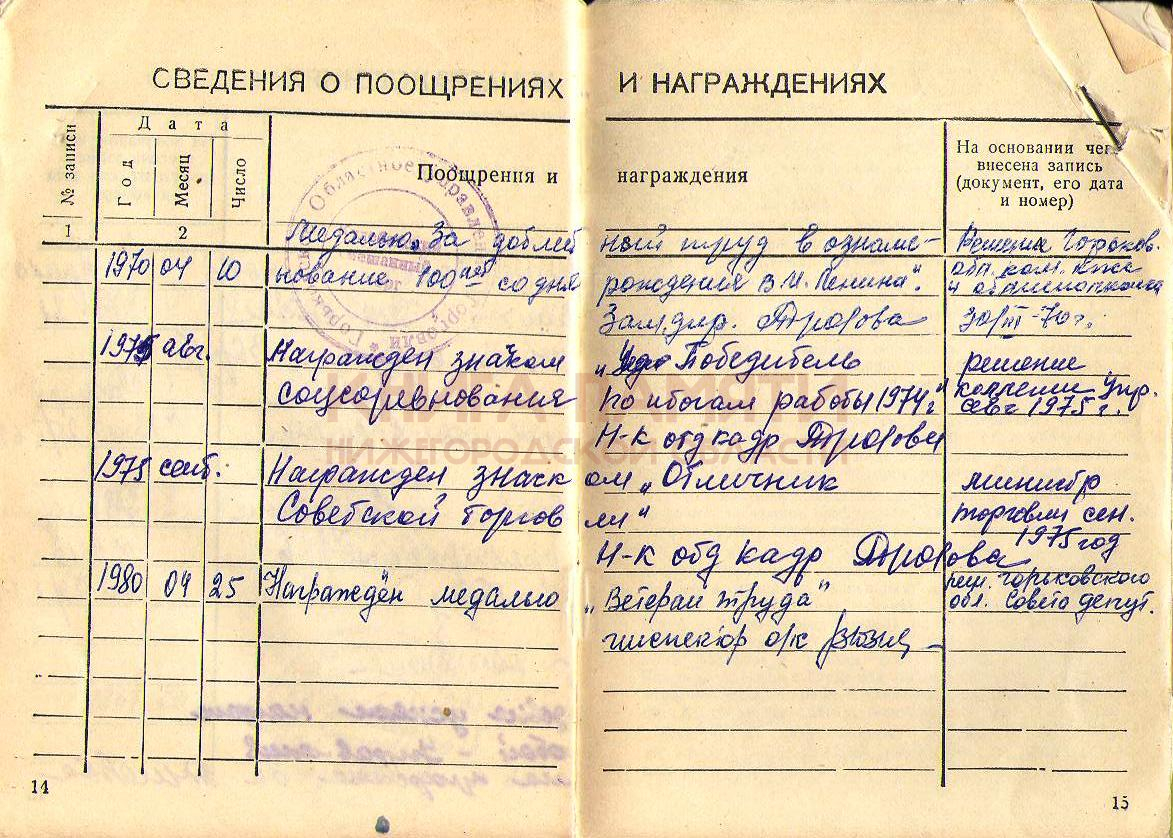 СВЕДЕНИЯ О ПООЩРЕНИЯХ И НАГРАЖДЕНИЯХ
№ записи
Дата
Год
Месяц
Число
Поощрения и награждения
На основании чего
внесена запись
(документ, его дата
и номер)
1 2
Медалью „За доблестный труд в ознаме- Решение Горьков.
1970 04 10 нование 100лет со дня рождения В.И. Ленина". обл. ком. КПСС
Зам. дир. 30/III-70г.
1975 авг. Награжден значком „Победитель решение
соцсоревнования по итогам работы 1974г" коллегии Упр.
авг 1975 г.
Н-к отд кадр
1975 сент. Награжден значком „Отличник министр
Советской торговли" торговли сен.
1975 год
Н-к отд кадр
1980 04 25 Награждён медалью „Ветеран труда" реш. горьковского
обл. Совета депут.
инспектор о/к
КНИГА ПАМЯТИ
НИЖЕГОРОДСКОЙ ОБЛАСТИ
Областное управление
торговли
14
15